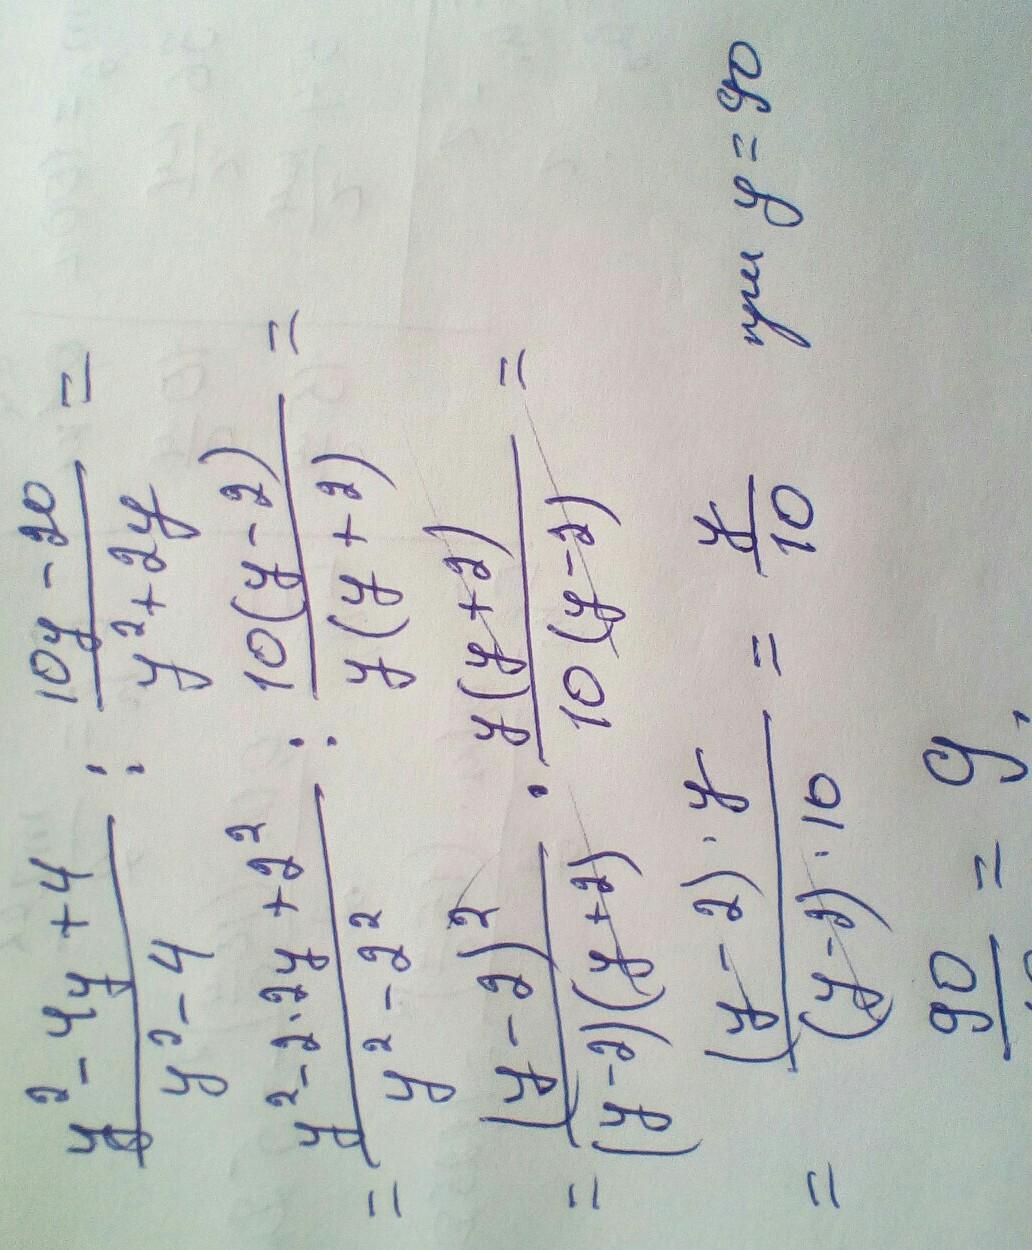 (y²-4y+4)/(y²-4) : (10y-20)/(y²+2y) =
= (y²-2·2y+2²)/(y²-2²) : (10(y-2))/(y(y+2)) =
= (y-2)²/((y-2)(y+2)) · (y(y+2))/(10(y-2)) =
= ((y-2)·y)/((y-2)·10) = y/10 при y=90
90/10 = 9,